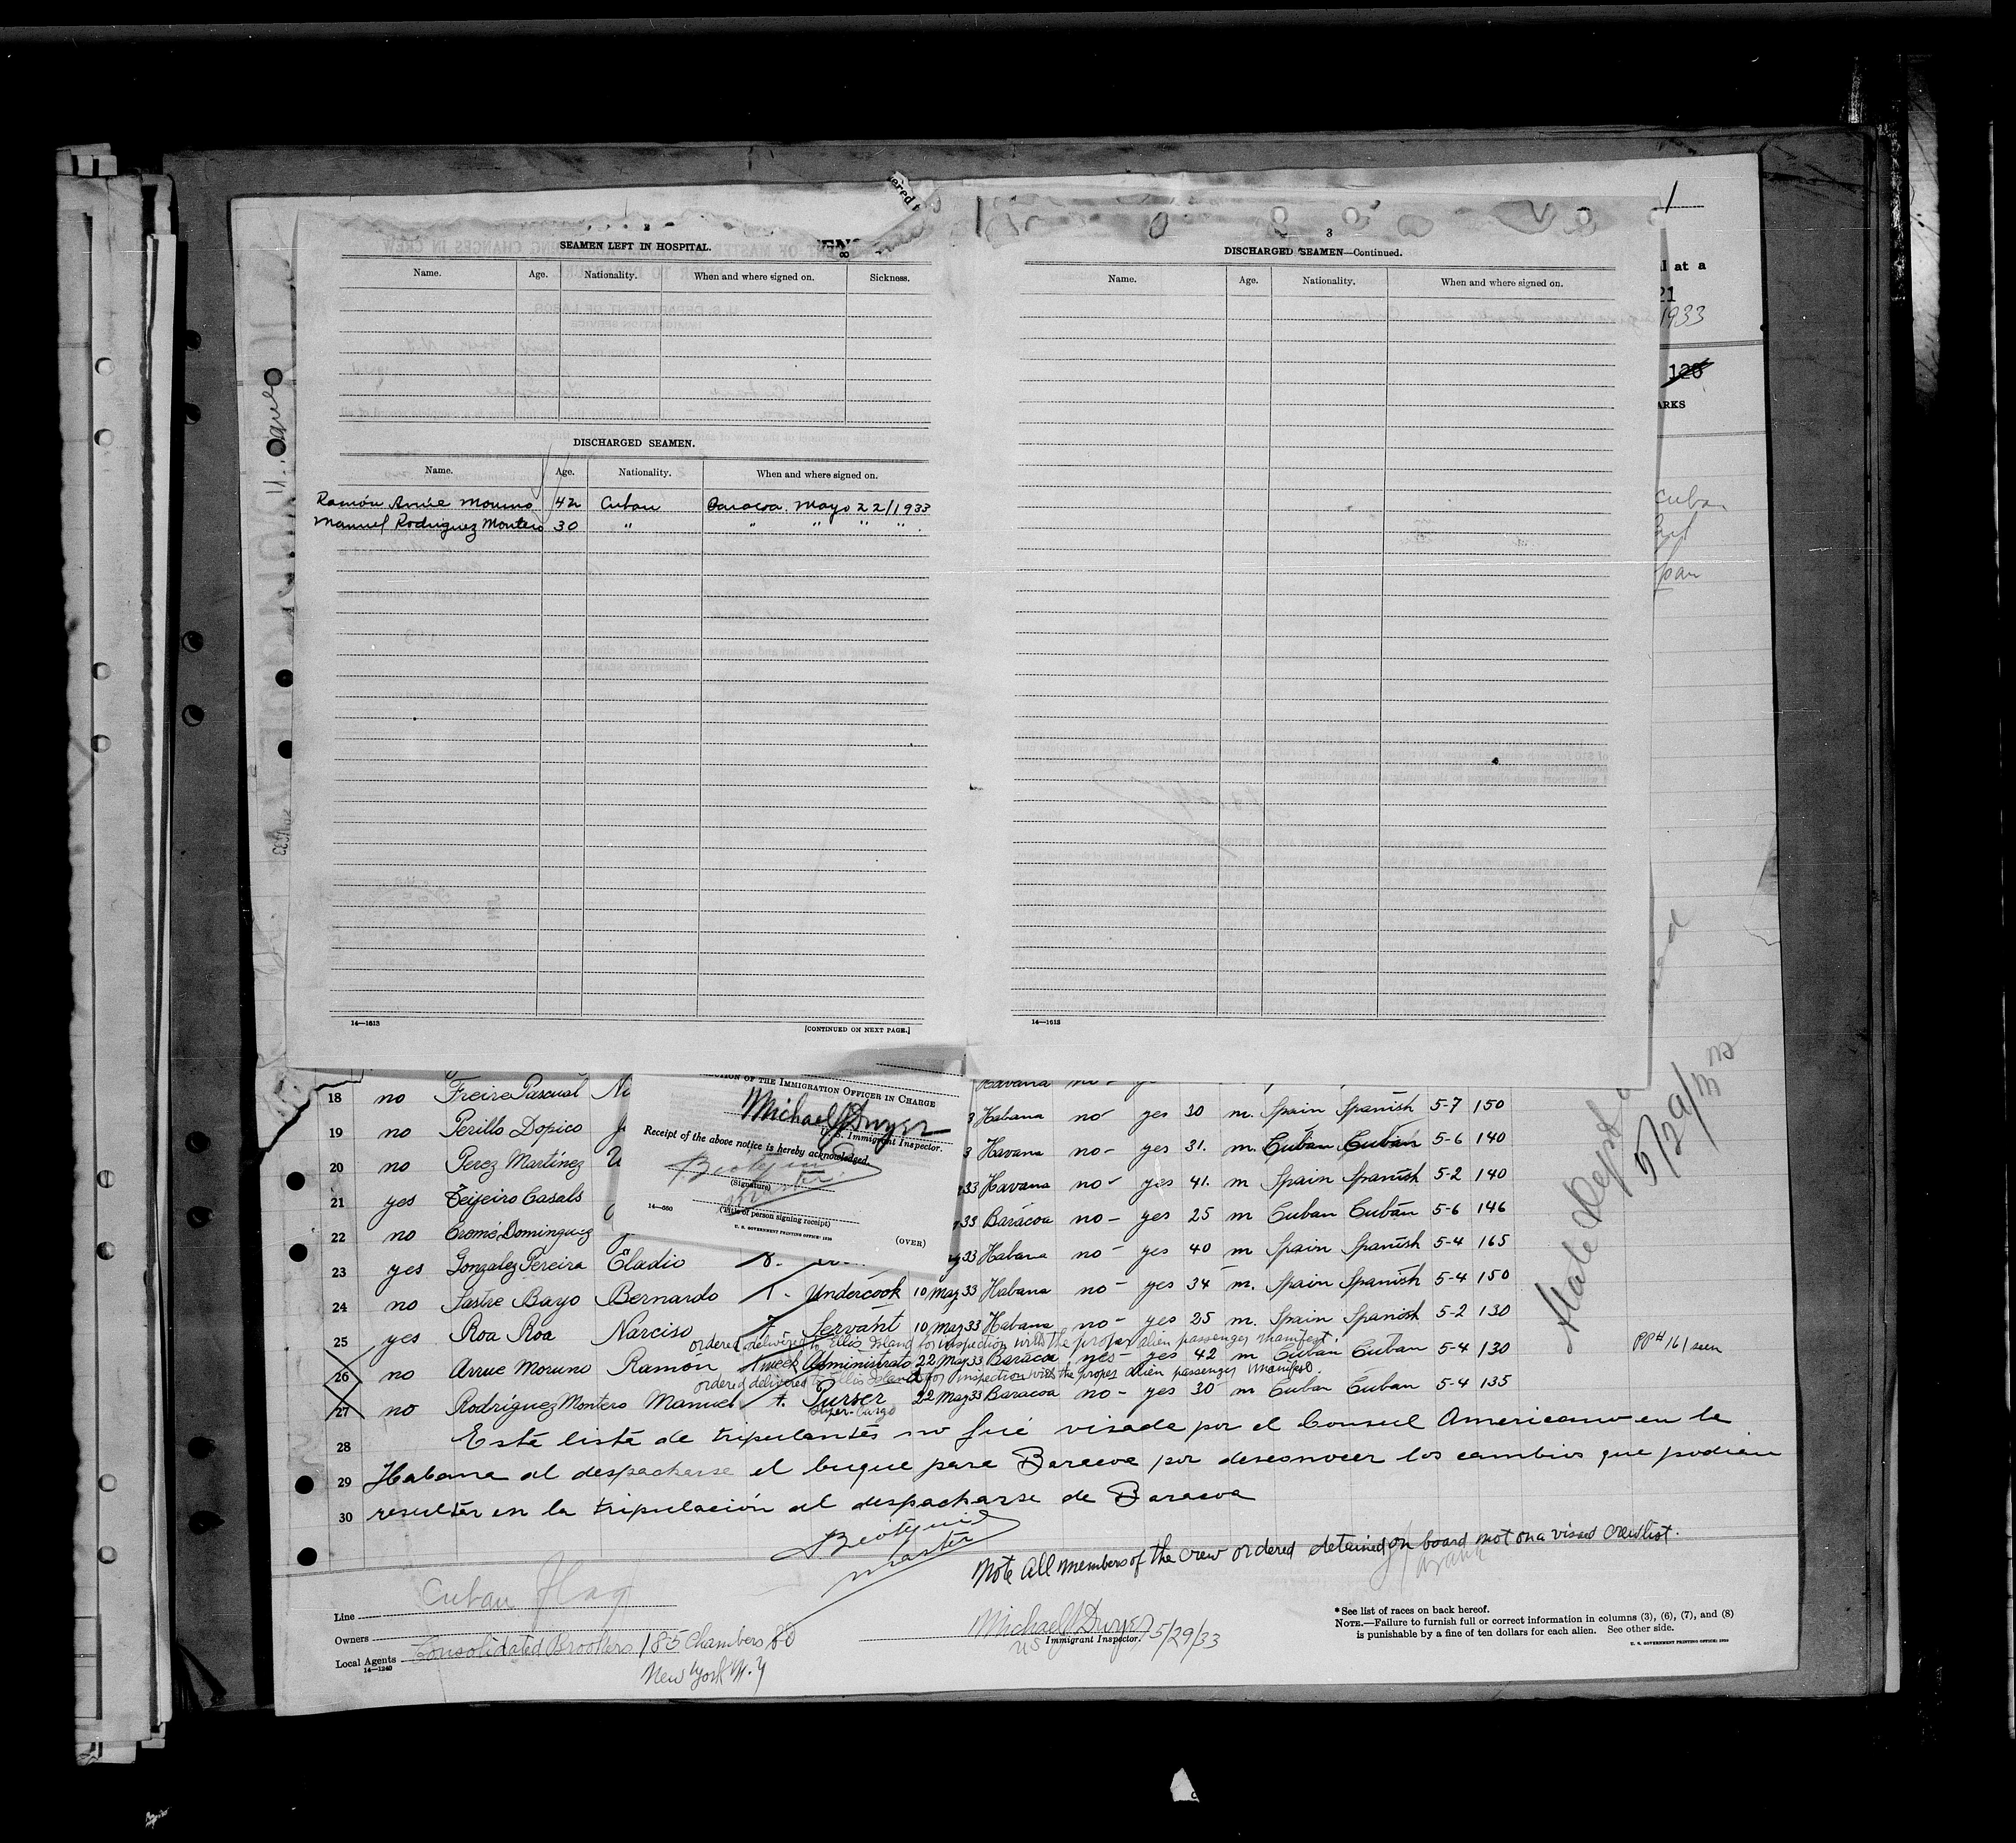 2
SEAMEN LEFT IN HOSPITAL.
Name. Age. Nationality. When and where signed on. Sickness.
DISCHARGED SEAMEN.
Name. Age. Nationality. When and where signed on.
Ramón Arrúe Moruno 42 Cuban Baracoa. Mayo 22/1933
Manuel Rodriguez Montero 30 " " " " "
14—1613
[CONTINUED ON NEXT PAGE.]
3
DISCHARGED SEAMEN—Continued.
Name. Age. Nationality. When and where signed on.
14—1613
1
l at a
21
1933
126
ARKS
Cuban
Span
OF THE IMMIGRATION OFFICER IN CHARGE
Michael J Dwyer
U. S. Immigrant Inspector.
Receipt of the above notice is hereby acknowledged.
(Signature)
Master
(Title of person signing receipt)
14—660
U. S. GOVERNMENT PRINTING OFFICE: 1930
(OVER)
Havana no-
18 no Freire Pascual 3 Habana no- yes 30 m. Spain Spanish 5-7 150
19 no Perillo Dopico 3 Havana no- yes 31. m. Cuban Cuban 5-6 140
20 no Perez Martínez 33 Havana no- yes 41. m Spain Spanish 5-2 140
21 yes Teijeiro Casals 33 Barácoa no- yes 25 m Cuban Cuban 5-6 146
22 no Cromó Dominguez 33 Habana no- yes 40 m Spain Spanish 5-4 165
23 yes Gonzalez Pereira Eladio 8. Habana no- yes 34 m. Spain Spanish 5-4 150
24 no Sastre Bayo Bernardo 1. Undercook 10 May 33 Habana no- yes 25 m. Spain Spanish 5-2 130
25 yes Roa Roa Narciso Servant 10 May 33
ordered delivered to Ellis Island for inspection with the proper alien passenger manifest.
26 no Arrue Moruno Ramon 1 week Administrato 22 May 33 Baracoa yes- yes 42 m Cuban Cuban 5-4 130 PP# 161 seen
ordered delivered to Ellis Island for inspection with the proper alien passenger manifest.
27 no Rodriguez Montero Manuel t. Purser 22 May 33 Baracoa no- yes 30 m Cuban Cuban 5-4 135
Super-Cargo
28 Esta lista de tripulantes no fué visada por el Consul Americano en la
29 Habana al despacharse el buque para Baracoa por desconocer los cambios que podian
30 resultar en la tripulación al despacharse de Baracoa
Master
Note All members of the crew ordered detained on board not on a visaed crewlist.
State Dept
5/29/33
Cuban Flag
Line
Owners
Local Agents Consolidated Brookers 185 Chambers
14—1240
New York N.Y
Michael J Dwyer 5/29/33
US Immigrant Inspector.
*See list of races on back hereof.
NOTE.—Failure to furnish full or correct information in columns (3), (6), (7), and (8)
is punishable by a fine of ten dollars for each alien. See other side.
U. S. GOVERNMENT PRINTING OFFICE: 1930